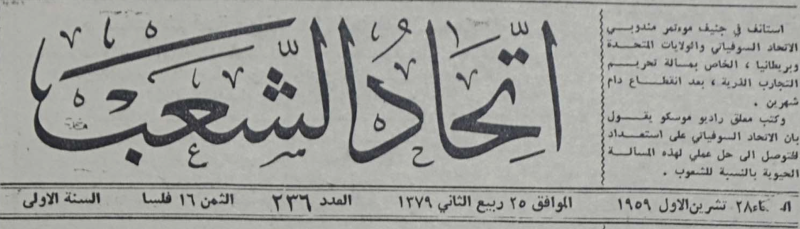 اتحاد الشعب
استانف في جنيف موءتمر مندوبي
الاتحاد السوفياتي والولايات المتحدة
وبريطانيا ، الخاص بمسالة تحريم
التجارب الذرية ، بعد انقطاع دام
شهرين .
وكتب معلق راديو موسكو يقول
بان الاتحاد السوفياتي على استعداد
للتوصل الى حل عملي لهذه المسالة
الحيوية بالنسبة للشعوب .
٢٨ تشرين الاول ١٩٥٩ الموافق ٢٥ ربيع الثاني ١٣٧٩ العدد ٢٣٦ الثمن ١٦ فلسا السنة الاولى